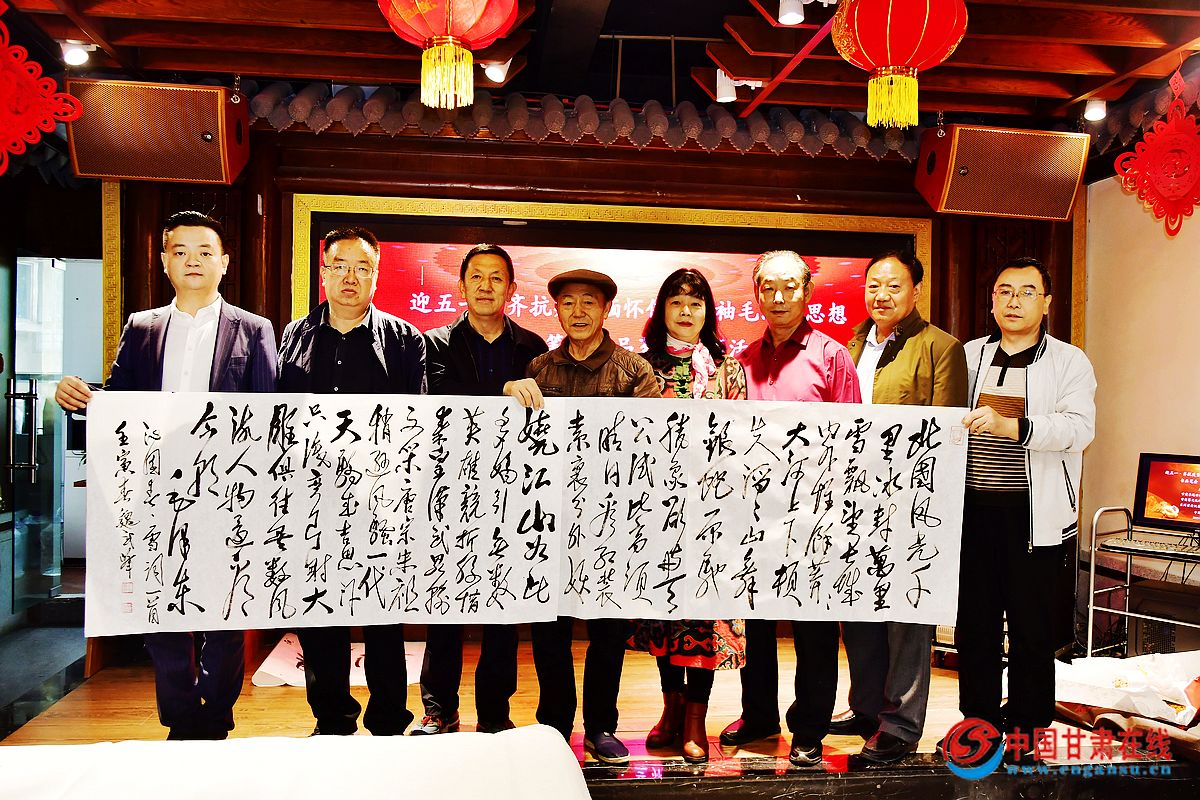 迎五一 齐抗 怀 袖毛 思想
品 活
北國风光千
里冰封萬里
雪飘望长城
内外惟馀莽莽
大河上下顿
失滔滔山舞
银蛇原驰
腊象欲与天
公试比高须
晴日看红装
素裹分外妖
娆江山如此
多娇引无数
英雄竞折腰惜
秦皇汉武略输
文采唐宗宋祖
稍逊风骚一代
天骄成吉思汗
只识弯弓射大
雕俱往矣数风
流人物还看
今朝
毛泽东
沁园春雪词一首
壬寅春魏
中国甘肃在线
www.cngansu.cn